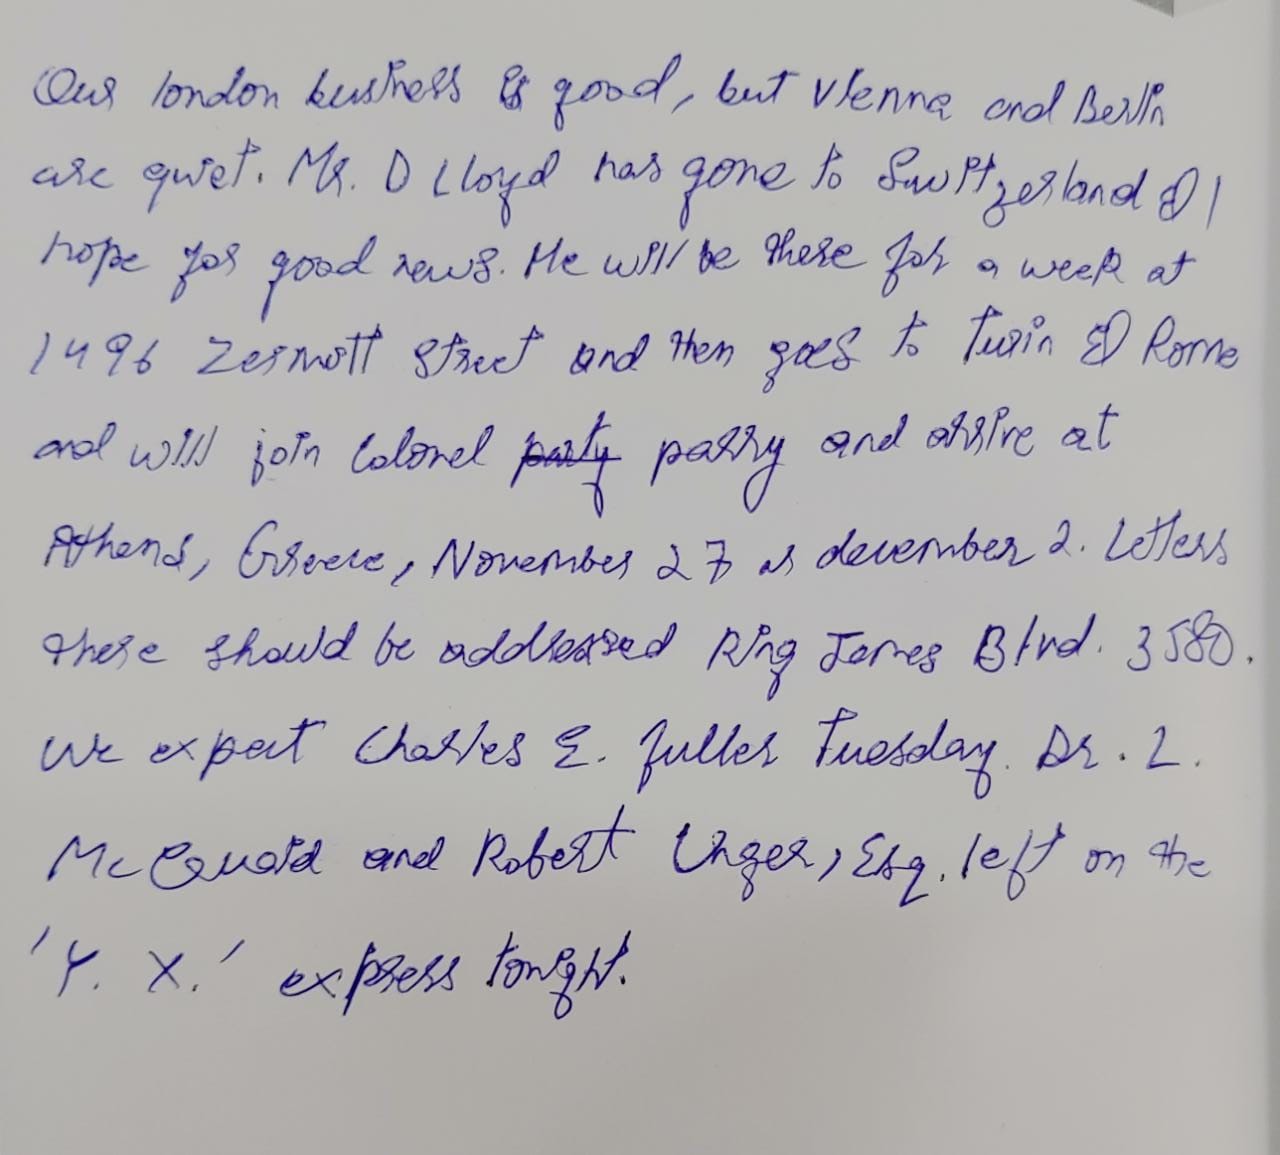 Our london business is good, but Vienna and Berlin
are quiet. Mr. D Lloyd has gone to Switzerland & I
hope for good news. He will be there for a week at
1496 Zermott Street and then goes to Turin & Rome
and will join Colonel party parry and arrive at
Athens, Greece, November 27 or december 2. Letters
there should be addressed King James Blvd. 3580.
We expect Charles E. fuller Tuesday. Dr. L.
McQuaid and Robert Unger, Esq. left on the
'Y. X.' express tonight.